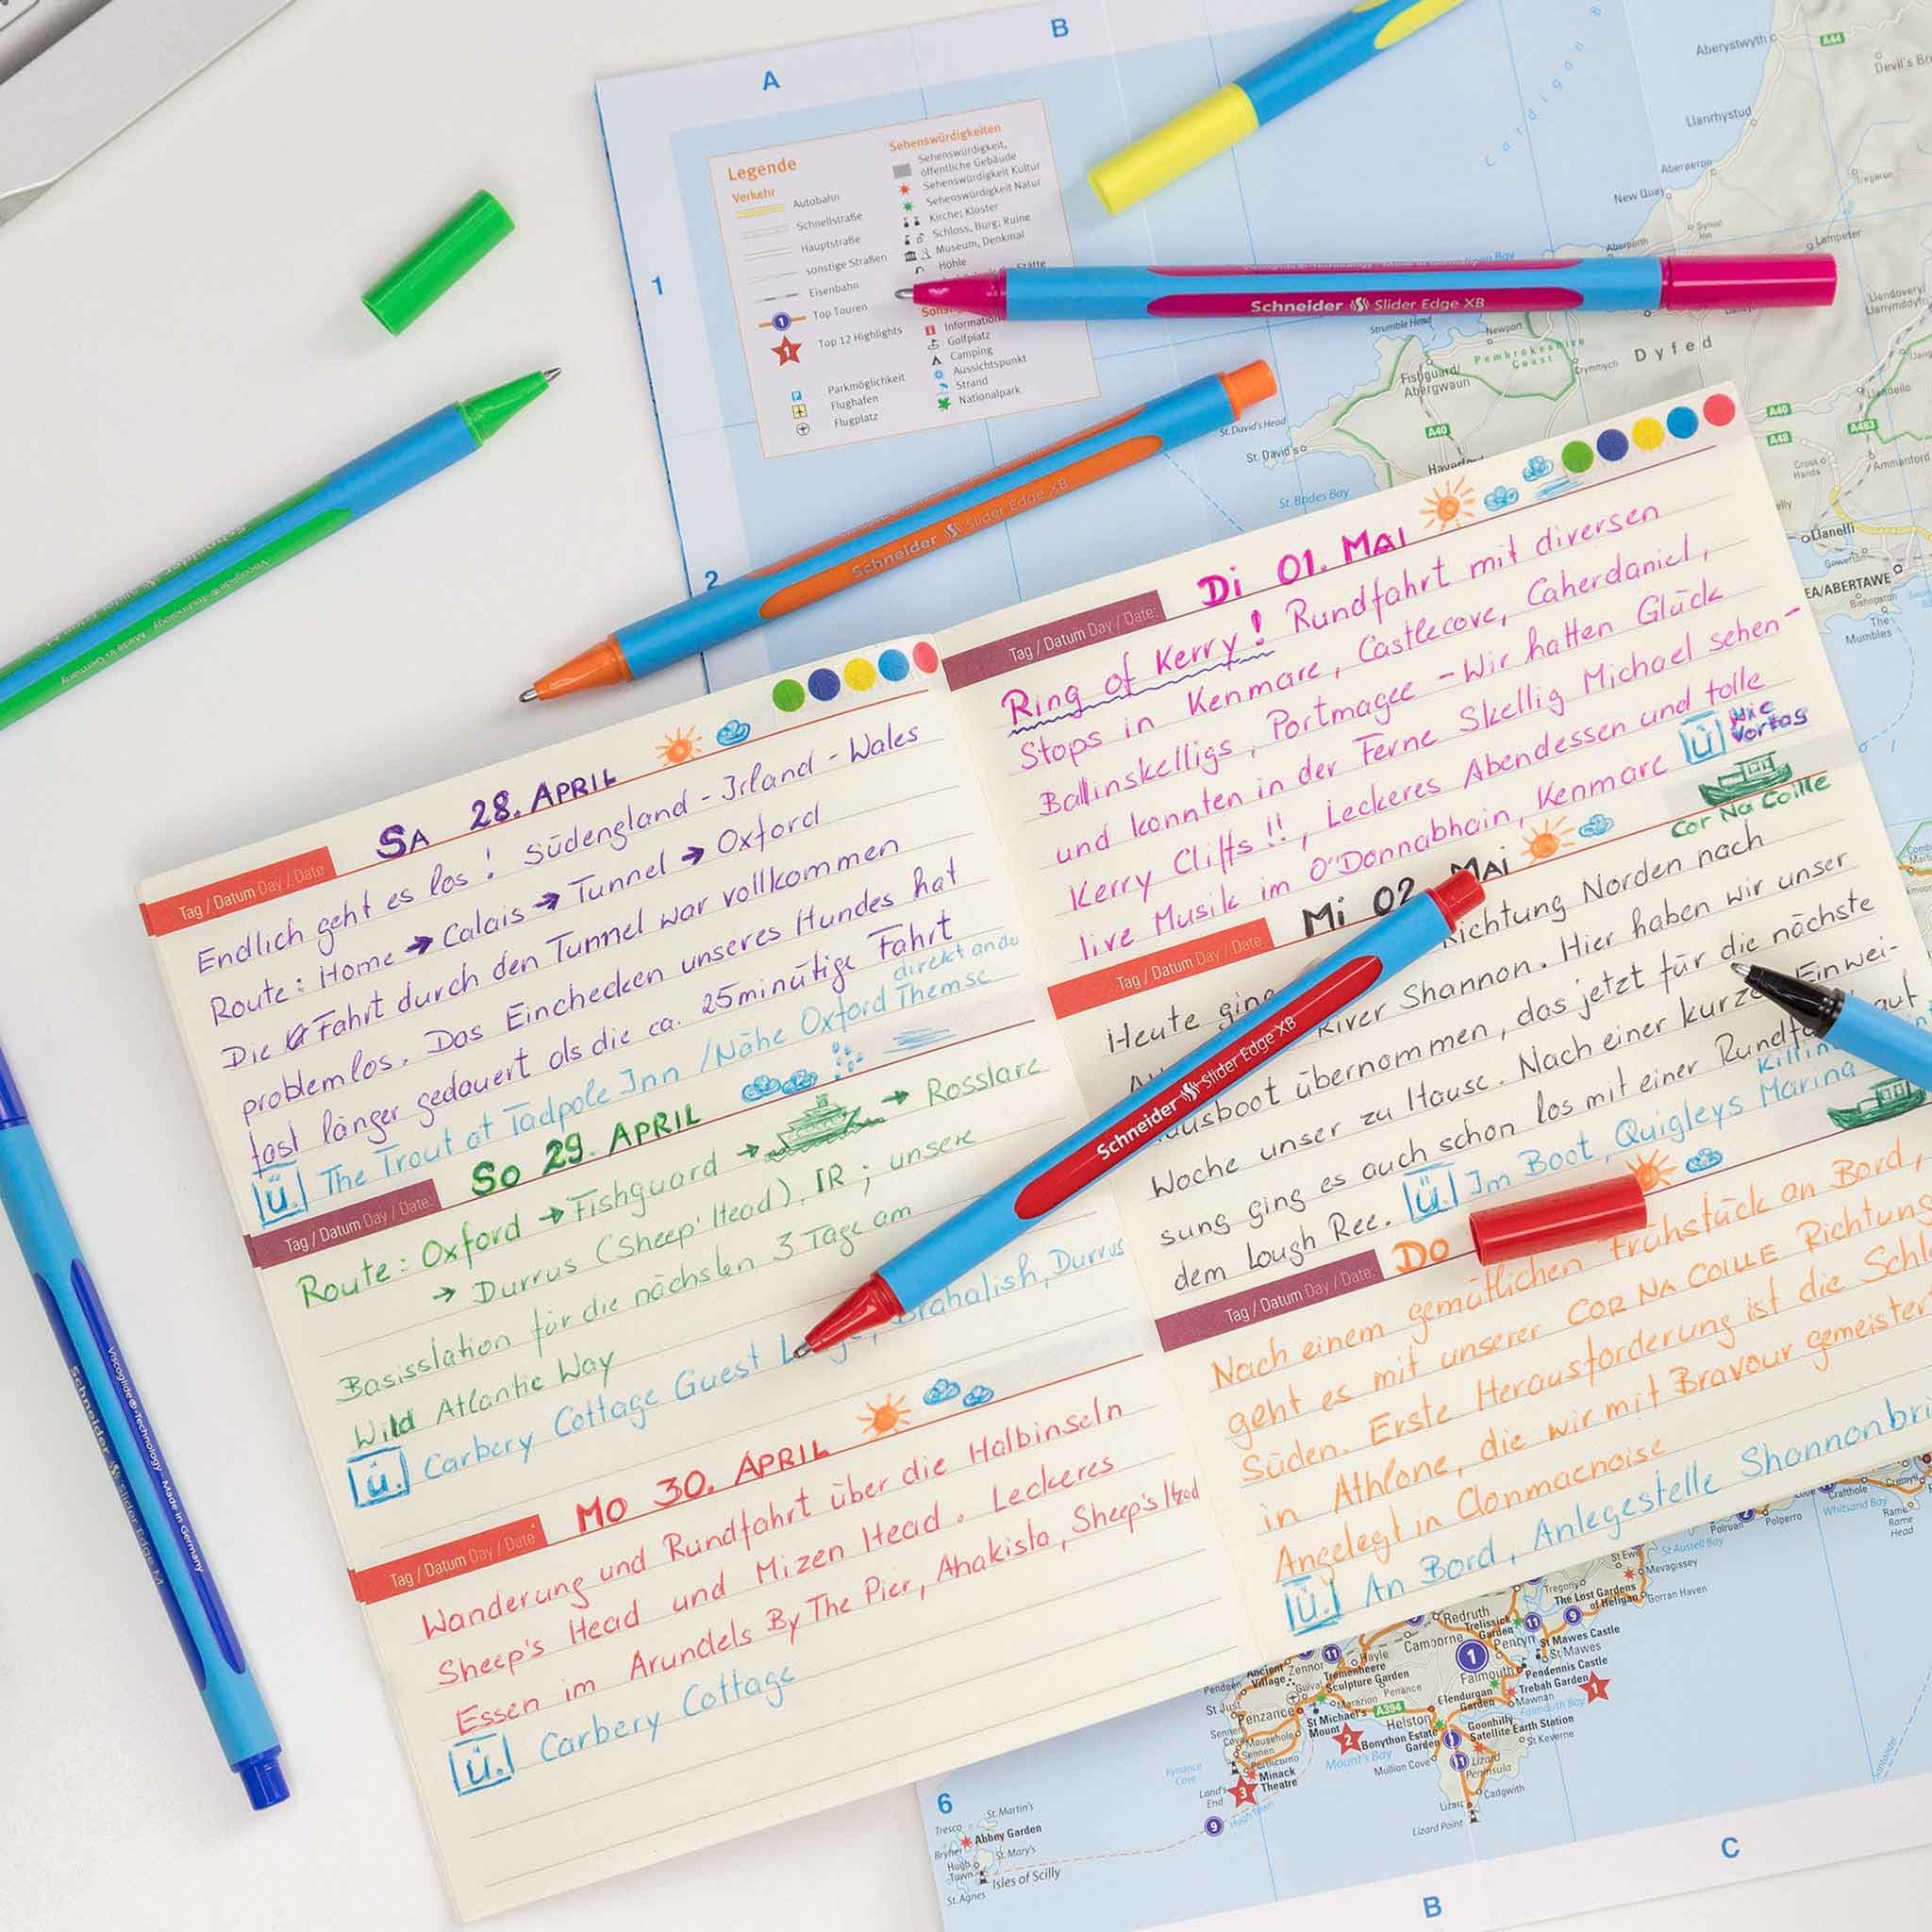 A
B
1
2
Legende
Verkehr
Autobahn
Schnellstraße
Hauptstraße
sonstige Straßen
Eisenbahn
1 Top Touren
1 Top 12 Highlights
P Parkmöglichkeit
Flughafen
Flugplatz
Sehenswürdigkeiten
Sehenswürdigkeit,
öffentliche Gebäude
Sehenswürdigkeit Kultur
Sehenswürdigkeit Natur
Kirche; Kloster
Schloss, Burg; Ruine
Museum, Denkmal
Höhle
Information
Golfplatz
Camping
Aussichtspunkt
Strand
Nationalpark
Cardigan B
Aberystwyth
A44
Llanrhystud
Aberaeron
New Quay
Synod Inn
Aberporth
Lampeter
Schneider Slider Edge XB
Strumble Head
Newport
Pembrokeshire
Coast
Dyfed
Fishguard/
Abergwaun
Crymmych
Llandeilo
A40
St. David's Head
St. David's
St. Brides Bay
A40
A48
A483
Cross Hands
Ammanford
Llanelli
EA/ABERTAWE
Bishopston
The
Mumbles
Schneider Slider Edge XB
Viscoglide®-Technology · Made in Germany
Tag / Datum Day / Date
SA 28. APRIL
Endlich geht es los! Südengland - Irland - Wales
Route: Home → Calais → Tunnel → Oxford
Die Fahrt durch den Tunnel war vollkommen
problemlos. Das Einchecken unseres Hundes hat
fast länger gedauert als die ca. 25minütige Fahrt
Ü. The Trout at Tadpole Inn / Nähe Oxford direkt an de
Themse
Tag / Datum Day / Date:
So 29. APRIL
Route: Oxford → Fishguard → → Rosslare
→ Durrus (Sheep' Head). IR; unsere
Basisstation für die nächsten 3 Tage am
Wild Atlantic Way
Ü. Carbery Cottage Guest Brahalish, Durrus
Tag / Datum Day / Date
MO 30. APRIL
Wanderung und Rundfahrt über die Halbinseln
Sheep's Head und Mizen Head. Leckeres
Essen im Arundels By The Pier, Ahakista, Sheep's Head
Ü. Carbery Cottage
Tag / Datum Day / Date:
Di 01. MAI
Ring of Kerry! Rundfahrt mit diversen
Stops in Kenmare, Castlecove, Caherdaniel,
Ballinskelligs, Portmagee - Wir hatten Glück
und konnten in der Ferne Skellig Michael sehen -
Kerry Cliffs!!, Leckeres Abendessen und tolle
live Musik im O'Donnabhain, Kenmare Ü Wie
Vortag
Tag / Datum Day / Date
Mi 02. MAI
Cor Na Coille
Heute ging Richtung Norden nach
River Shannon. Hier haben wir unser
Hausboot übernommen, das jetzt für die nächste
Woche unser zu Hause. Nach einer kurzen Einwei-
sung ging es auch schon los mit einer auf
dem Lough Ree. Ü. Im Boot, Quigleys Marina
Schneider Slider Edge XB
Tag / Datum Day / Date:
DO
Nach einem gemütlichen Frühstück an Bord,
geht es mit unserer COR NA COILLE Richtung
Süden. Erste Herausforderung ist die
in Athlone, die wir mit Bravour
Angelegt in Clonmacnoise
Ü. An Bord, Anlegestelle
Schneider Slider Edge M
Viscoglide®-Technology · Made in Germany
Polruan
Polperro
Whitsand Bay
Rame
Head
St Austell Bay
Mevagissey
Gorran Haven
The Lost Gardens
of Heligan
9
Tregony
Redruth
Trelissick
Garden
Camborne
Penryn
St Mawes Castle
St Mawes
Falmouth
Pendennis Castle
Trebah Garden
Mawnan
Falmouth Bay
Glendurgan
Garden
Hayle
Zennor
Tremenheere
Sculpture Garden
Ancient
Village
Pendeen
St Just
Penzance
Marazion
St Michael's
Mount
A394
Helston
Bonython Estate
Garden
Goonhilly
Satellite Earth Station
St Keverne
Mousehole
Sennen
Mount's Bay
Mullion Cove
Lizard
Peninsula
Cadgwith
Lizard
Lizard Point
Kynance
Cove
Porthcurno
Minack
Theatre
Land's
End
9
6
St. Martin's
Tresco
Abbey Garden
Bryher
St. Mary's
Hugh
Town
Isles of Scilly
St. Agnes
B
C